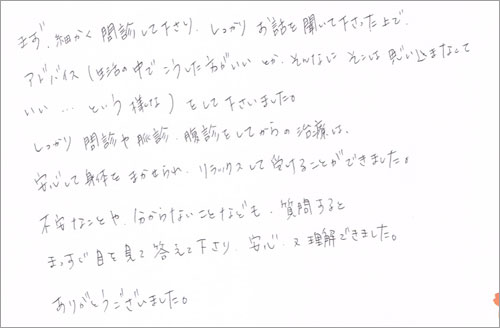 まず、細かく問診して下さり、しっかりお話を聞いて下さった上で、
アドバイス（生活の中でこうした方がいいとか、そんなにそこは思い込まなくて
いい…という様な）をして下さいました。
しっかり問診や脈診、腹診をしてからの治療は、
安心して身体をまかせられ、リラックスして受けることができました。
不安なことや、分からないことなども、質問すると
まっすぐ目を見て答えて下さり、安心、又理解できました。
ありがとうございました。